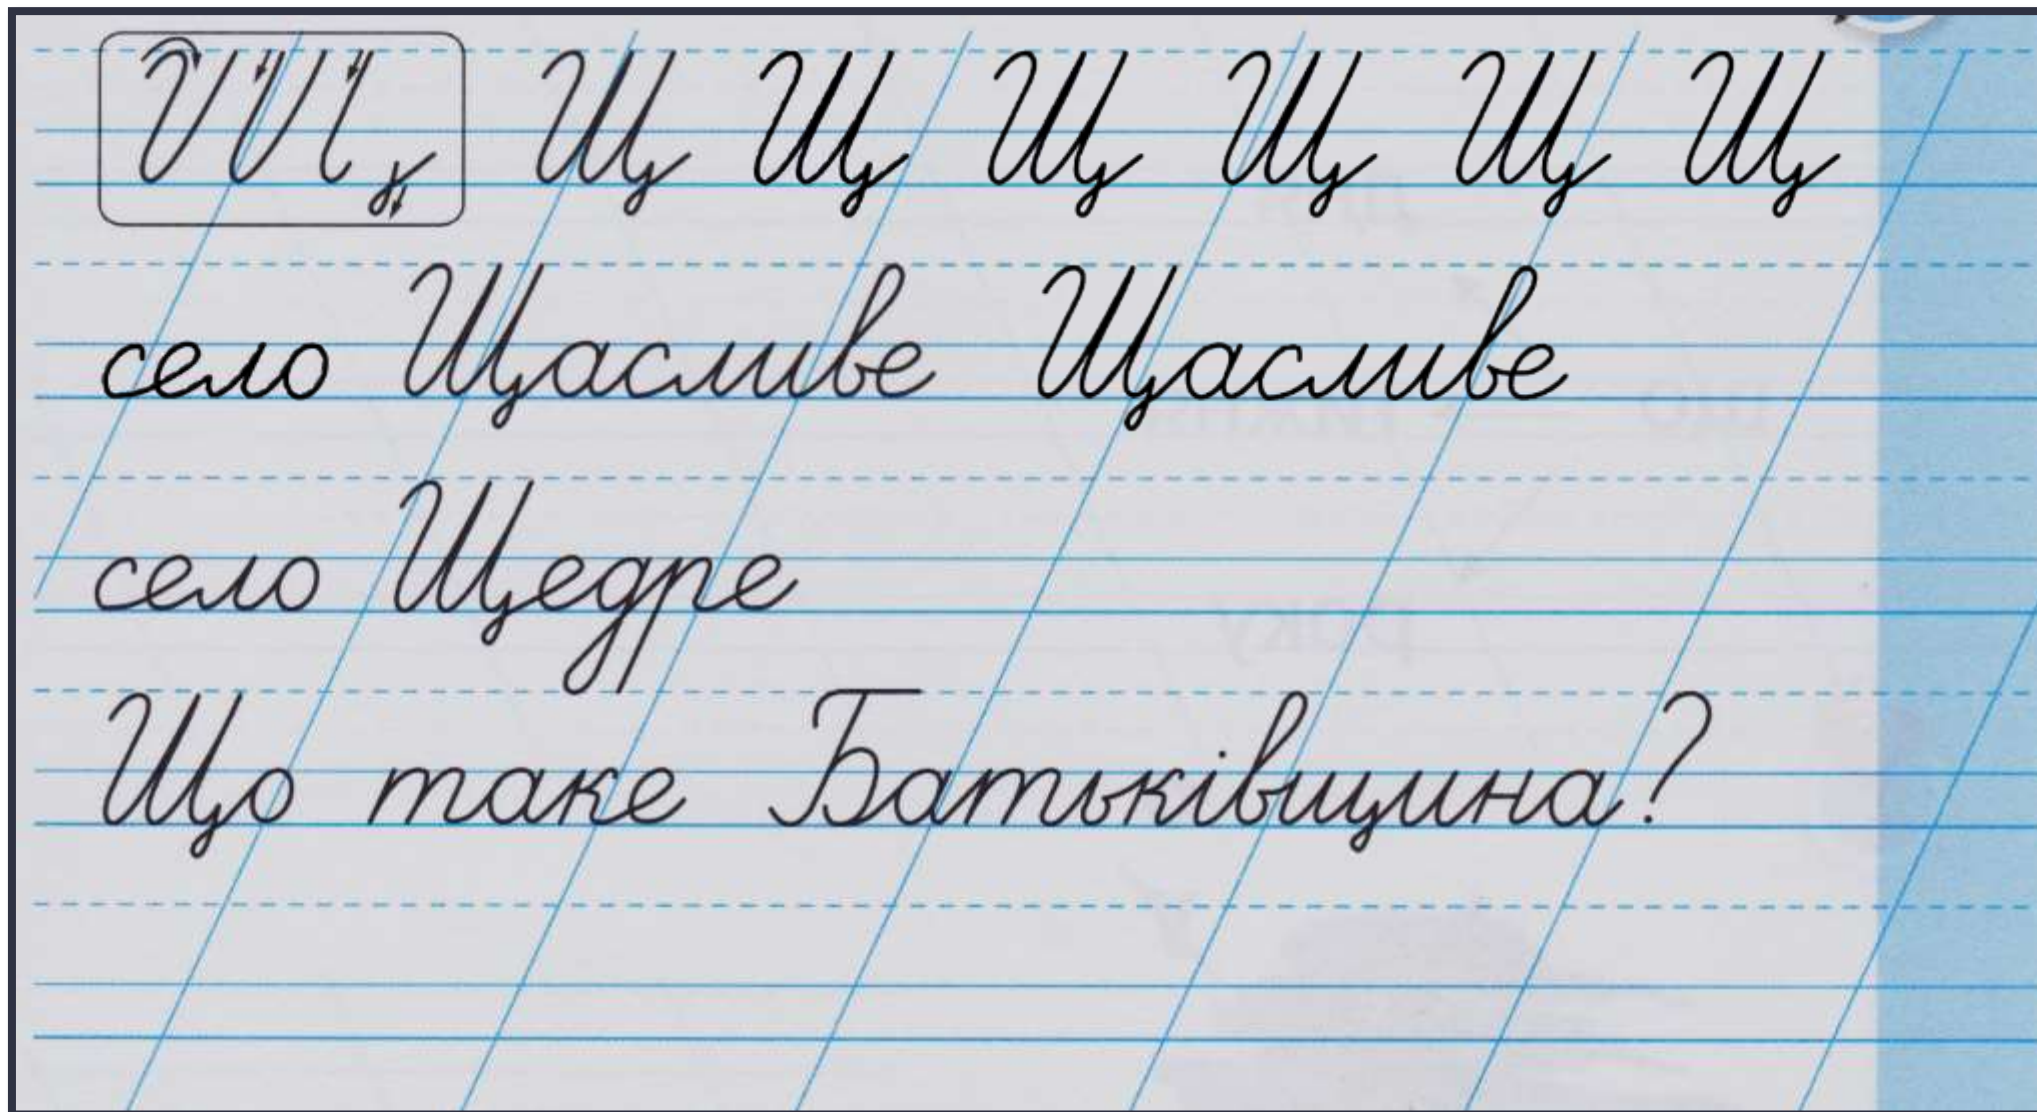 Щ Щ Щ Щ Щ Щ
село Щасливе Щасливе
село Щедре
Що таке Батьківщина?